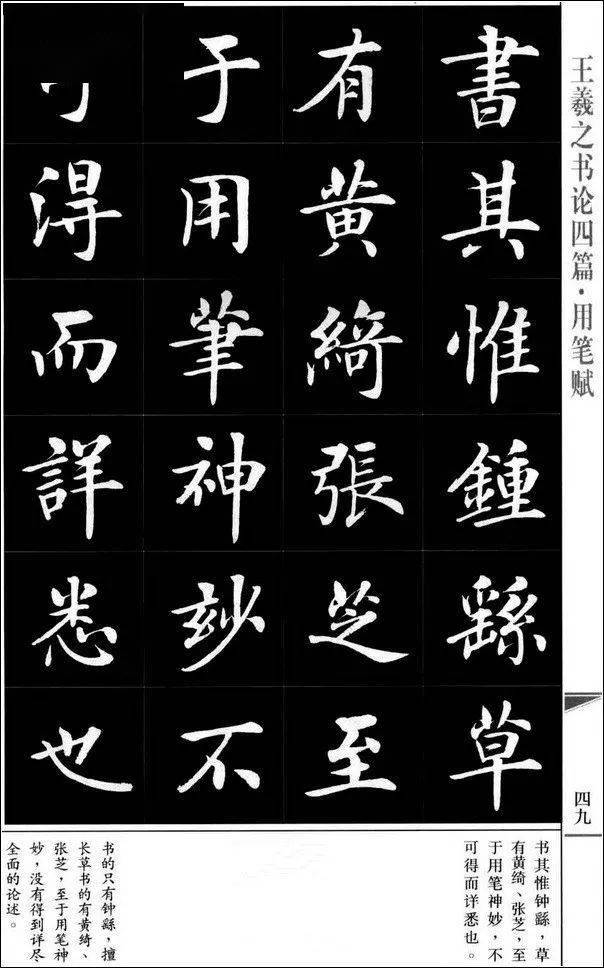 王羲之书论四篇·用笔赋
四九
書其惟鍾繇草
有黄綺張芝至
于用筆神玅不
得而詳悉也
书其惟钟繇，草
有黄绮、张芝，至
于用笔神妙，不
可得而详悉也。
书的只有钟繇，擅
长草书的有黄绮、
张芝，至于用笔神
妙，没有得到详尽
全面的论述。